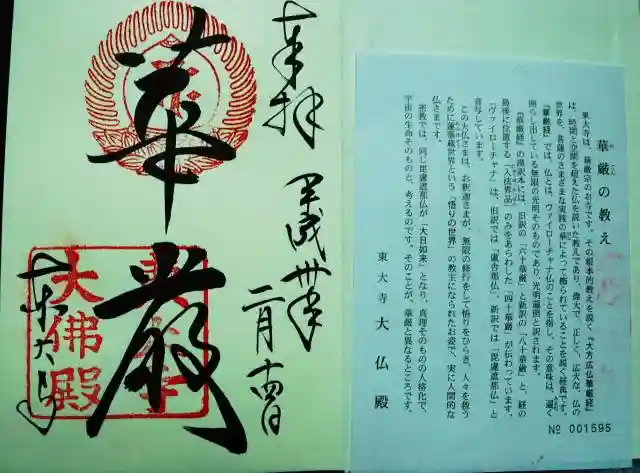 華厳の教え
東大寺は、華厳宗のお寺です。その根本的教えを説く『大方広仏華厳経』
は、時間と空間を超えた仏を説いた教えであり、偉大で、正しく、広大な、仏の
世界を、菩薩のさまざまな実践の華によって飾られていることを説く経典です。
『華厳経』では、仏とは、ヴァイローチャナ仏のことを指し、その意味は、遍く
照らし出している無限の光明そのものであり、光明遍照と訳されます。
『華厳経』の漢訳本には、旧訳の「六十華厳」と新訳の「八十華厳」と、経の
最後に位置する「入法界品」のみをあらわした「四十華厳」が伝わっています。
「ヴァイローチャナ」は、旧訳では「盧舎那仏」、新訳では「毘盧遮那仏」と
音写しています。
この大仏さまは、お釈迦さまが、無限の修行をして悟りをひらき、人々を救う
ために蓮華蔵世界という「悟りの世界」の教主になられたお姿で、実に人間的な
仏さまです。
密教では、同じ毘盧遮那仏が「大日如来」となり、真理そのものの人格化で、
宇宙の生命そのものと、考えるのです。そのことが、華厳と異なるところです。
東大寺 大仏殿
№ 001595
奉拝
平成卅年
二月十四日
華嚴
東大寺
東大寺
大佛殿